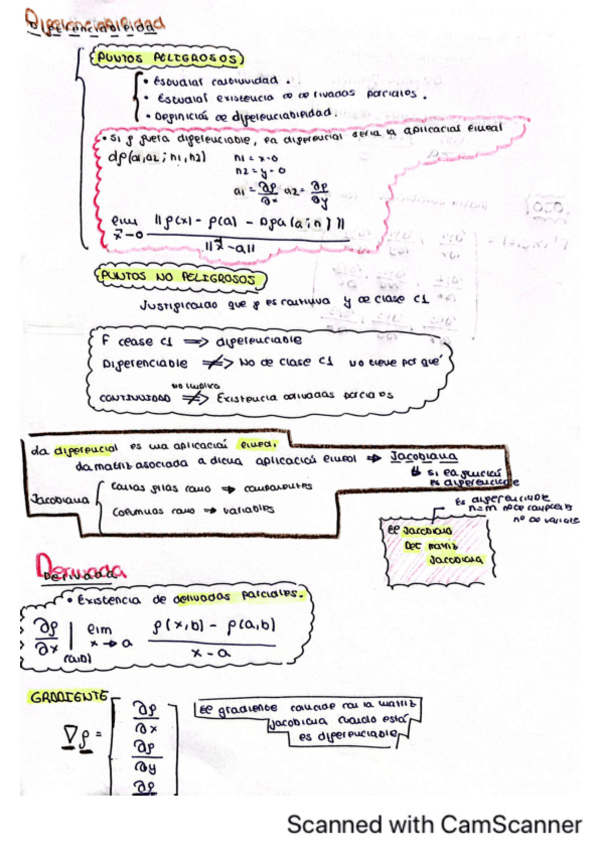 Diferenciabilidad
PUNTOS PELIGROSOS
• Estudiar continuidad.
• Estudiar existencia de derivadas parciales.
• Definición de diferenciabilidad.
• Si f fuera diferenciable, la diferencial sería la aplicación lineal
df(a1,a2; h1,h2) h1 = x-0
h2 = y-0
a1 = ∂f/∂x a2 = ∂f/∂y
lim x→0 ||f(x) - f(a) - Dfa(a;h)|| / ||x-a||
PUNTOS NO PELIGROSOS
Justificando que f es continua y de clase C1
F clase C1 ⟹ diferenciable
Diferenciable ⇏ No de clase C1 no tiene por qué
no implica
CONTINUIDAD ⇏ Existencia derivadas parciales
La diferencial es una aplicación lineal.
La matriz asociada a dicha aplicación lineal ⟹ Jacobiana
si la función
es diferenciable
Jacobiana
tantas filas como ⟹ componentes
Columnas como ⟹ variables
Es diferenciable
n=m nº de
nº de
El Jacobiano
Det matriz
Jacobiana
Derivada
• Existencia de derivadas parciales.
∂f/∂x | (a,b) lim x→a f(x,b) - f(a,b) / x-a
GRADIENTE
∇f = [ ∂f/∂x
∂f/∂y
∂f
El gradiente coincide con la matriz
jacobiana cuando esta
es diferenciable
Scanned with CamScanner